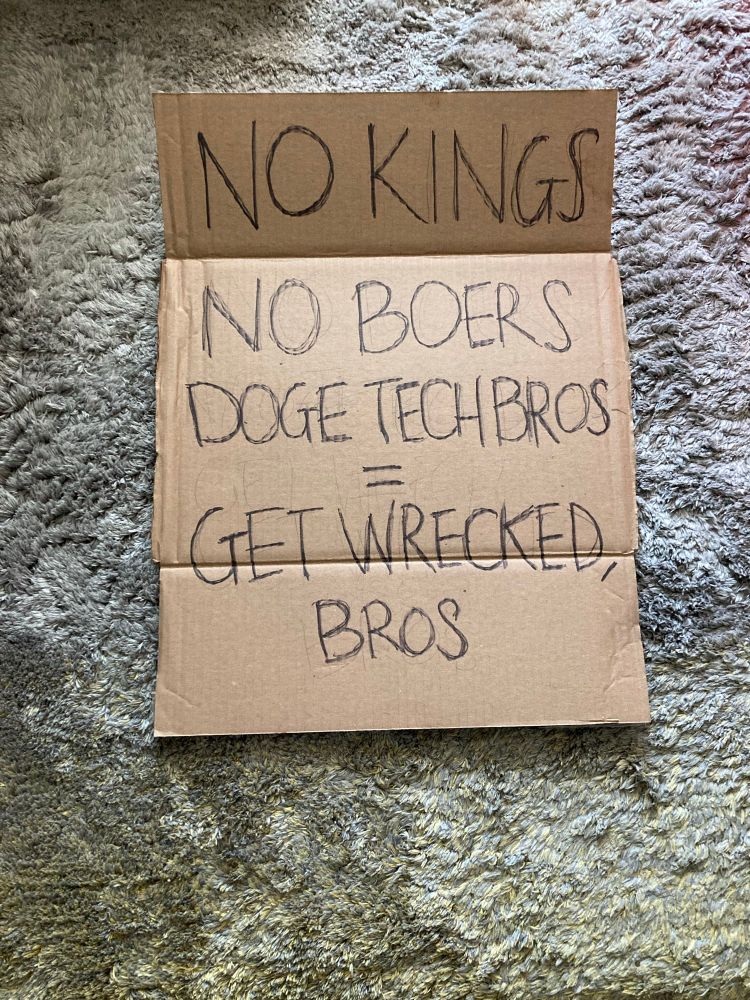 NO KINGS
NO BOERS
DOGE TECHBROS
=
GET WRECKED,
BROS